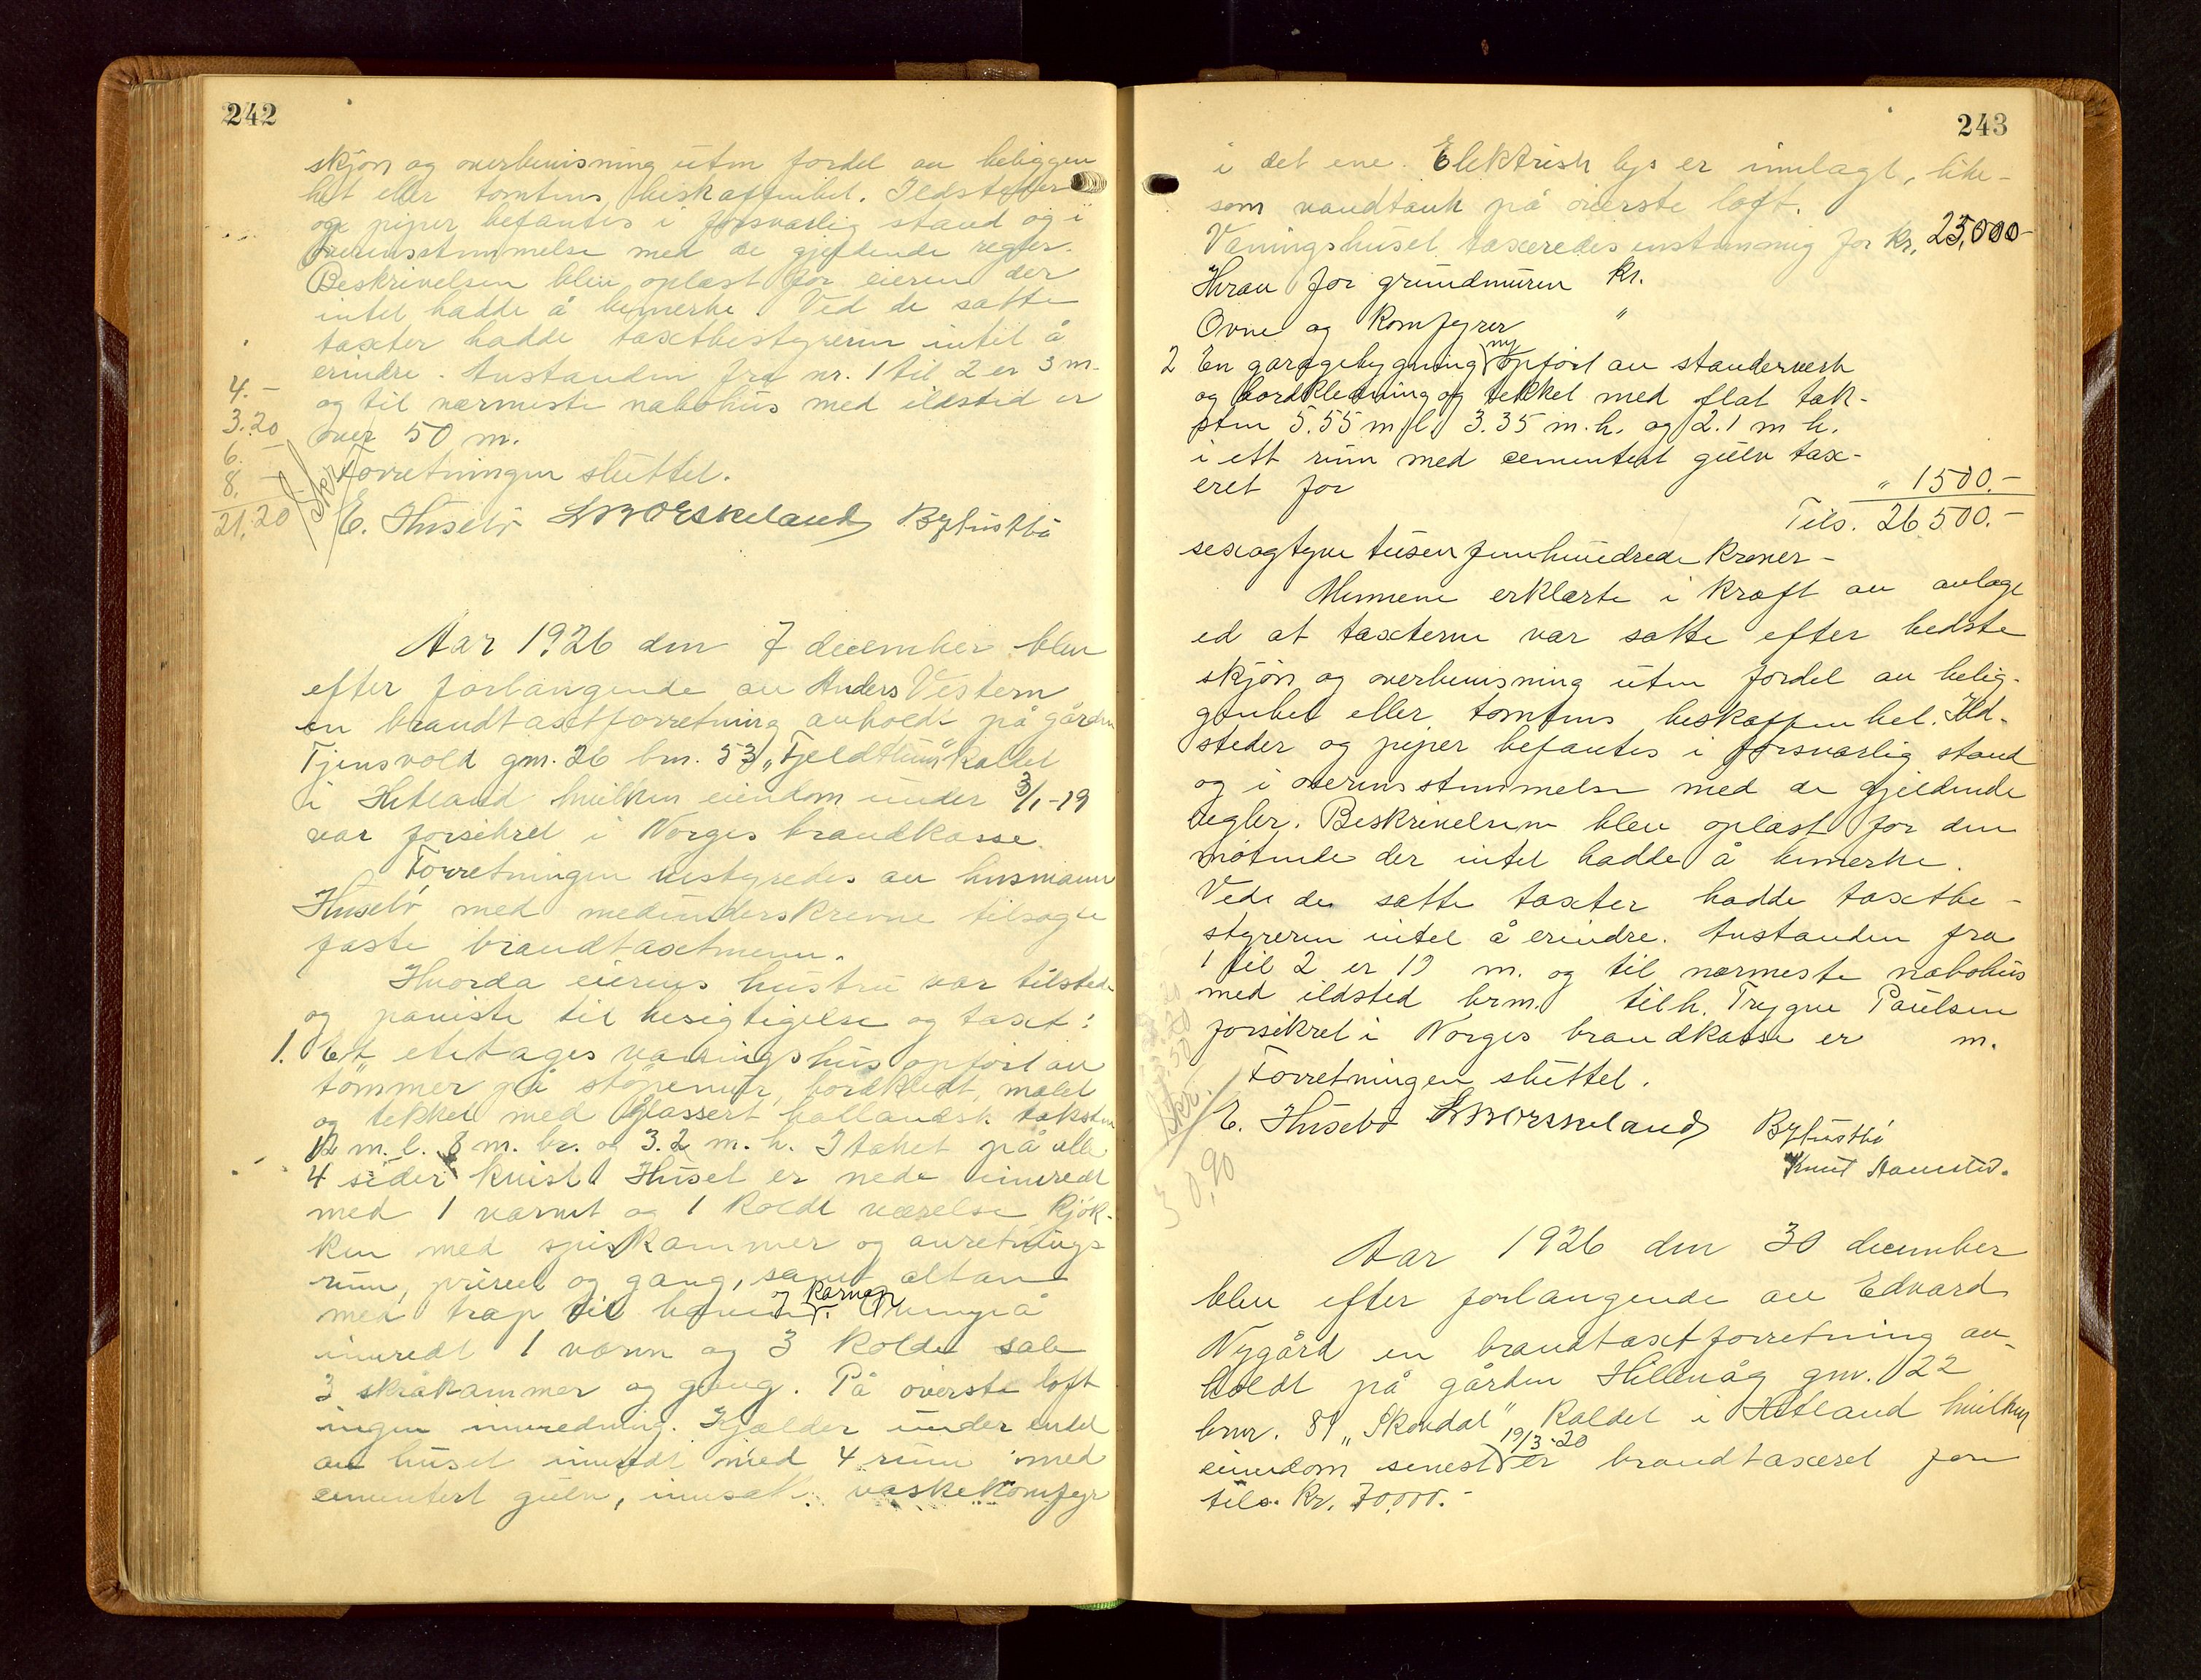 242
skjøn og overbevisning uten fordel av beliggen
het eller tomtens beskaffenhet. Ildsteder
og piper befantes i forsvarlig stand og i
overensstemmelse med de gjeldende regler.
Beskrivelsen blev oplæst for eieren der
intet hadde å bemerke. Ved de satte
taxter hadde taxtbestyreren intet å
erindre. Avstanden fra nr. 1 til 2 er 3 m.
og til nærmeste nabohus med ildsted er
over 50 m.
Forretningen sluttet.
4.-
3.20
6.-
8.-
21.20
Skr.
E. Husebø
Aar 1926 den 7 december blev
efter forlangende av Anders Vestern
en brandtaxtforretning avholdt på gården
Tjensvold gnr. 26 bnr. 53 „Fjeldtun" kaldet
i Hetland hvilken eiendom under 3/1-19
var forsikret i Norges brandkasse.
Forretningen bestyredes av husmann
Husebø med medunderskrevne tilsagte
faste brandtaxtmenn.
Hvorda eierens hustru var tilstede
og paviste til besigtigelse og taxt:
1. Et etetages våningshus opført av
tømmer på støpemur, bordklædt, malet
og tekket med glassert hollandsk taksten
12 m. l. 8 m. br. og 3.2 m. h. I taket på alle
4 sider kvist. Huset er nede innredt
med 1 varmt og 1 koldt værelse kjøk-
ken med spiskammer og anretnings-
rum, priveet og gang, samt altan
med trap til haven og karnap. Ovenpå
innredt 1 varm og 3 kolde sale
3 skråkammer og gang. På øverste loft
ingen innredning. Kjælder under endel
av huset innredt med 4 rum med
cementert gulv, innsat vaskekomfyr
243
i det ene. Elektrisk lys er innlagt, like-
som vandtank på øverste loft.
Våningshuset taxeredes enstemmig for kr. 25,000-
Herav for grundmuren kr.
Ovne og komfyrer "
2 En garagebygning ny opført av standerverk
og bordkledning og tekket med flat tak-
sten 5.55 m l. 3.35 m. h. og 2.1 m h.
i ett rum med cementert gulv tax-
eret for " 1500.-
Tils. 26500.-
sexogtyve tusen femhundrede kroner-
Mennene erklærte i kraft av avlagt
ed at taxterne var satte efter bedste
skjøn og overbevisning uten fordel av belig-
genhet eller tomtens beskaffenhet. Ild-
steder og piper befantes i forsvarlig stand
og i overensstemmelse med de gjeldende
regler. Beskrivelsen blev oplæst for den
møtende der intet hadde å bemerke.
Vede de satte taxter hadde taxtbe-
styreren intet å erindre. Avstanden fra
1 til 2 er 19 m. og til nærmeste nabohus
med ildsted brm. tilh. Trygve Paulsen
forsikret i Norges brandkasse er m.
Forretningen sluttet.
Skr.
30,90
E. Husebø
Knut
Aar 1926 den 30 december
blev efter forlangende av Edvard
Nygård en brandtaxtforretning av-
holdt på gården Hillevåg gnr. 22
bnr. 81 „Skoudal" kaldet i Hetland hvilken
eiendom senest 19/3-20 er brandtaxeret for
tils. kr. 70,000.-